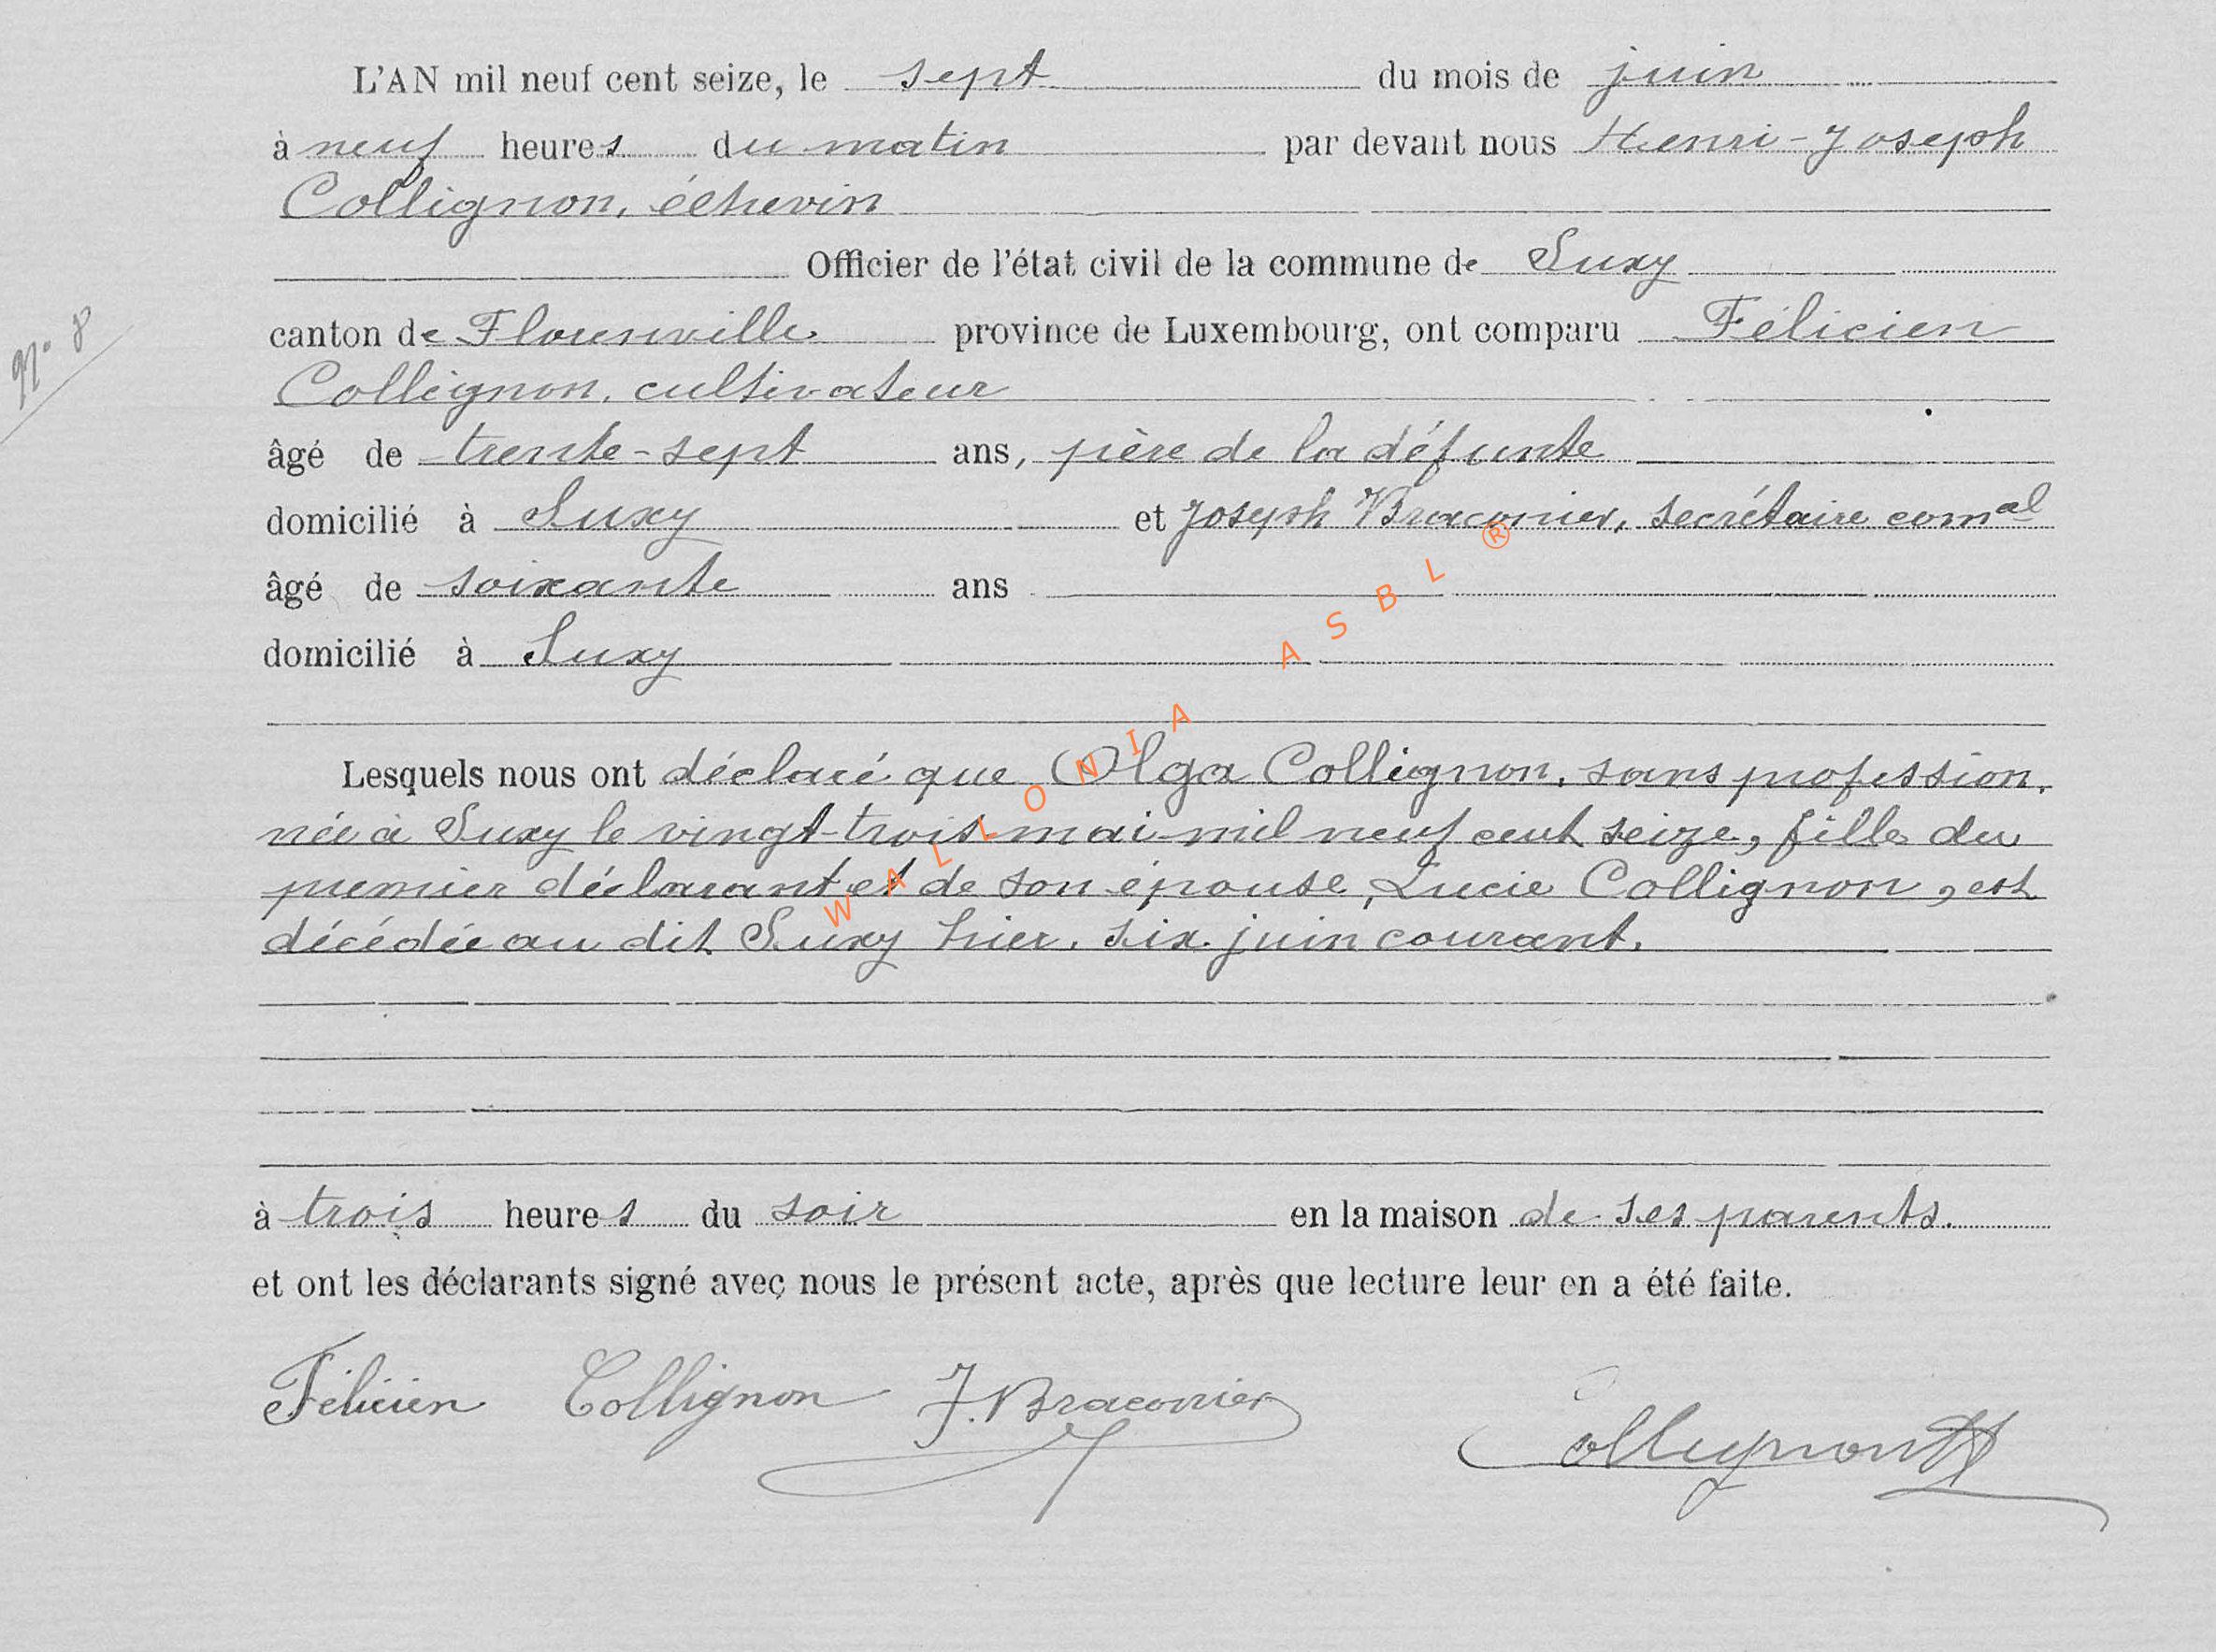 L'AN mil neuf cent seize, le sept du mois de juin
à neuf heures du matin par devant nous Henri-Joseph
Collignon, échevin
Officier de l'état civil de la commune de Suxy
N° 8
canton de Florenville province de Luxembourg, ont comparu Félicien
Collignon, cultivateur
âgé de trente-sept ans, père de la défunte
domicilié à Suxy et Joseph Braconier, secrétaire comal
âgé de soixante ans
domicilié à Suxy
Lesquels nous ont déclaré que Olga Collignon, sans profession,
née à Suxy le vingt-trois mai mil neuf cent seize, fille du
premier déclarant et de son épouse, Lucie Collignon, est
décédée au dit Suxy hier, six juin courant.
à trois heures du soir en la maison de ses parents.
et ont les déclarants signé avec nous le présent acte, après que lecture leur en a été faite.
Félicien Collignon J. Braconier Collignon
WALLONIA ASBL ®